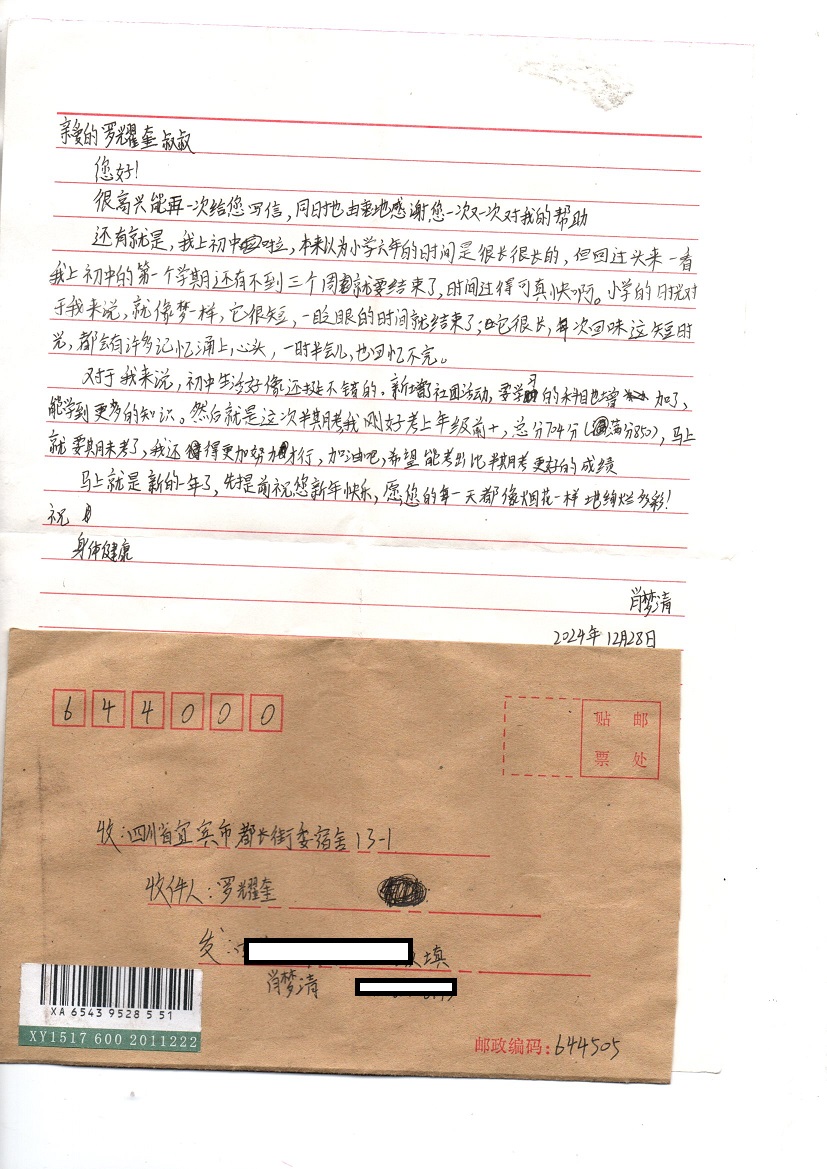 亲爱的罗耀奎叔叔
您好!
很高兴能再一次给您写信,同时也由衷地感谢您一次又一次对我的帮助
还有就是,我上初中啦,本来以为小学六年的时间是很长很长的,但回过头来一看
我上初中的第一个学期还有不到三个周就要结束了,时间过得可真快啊。小学的日子对
于我来说,就像梦一样,它很短,一眨眼的时间就结束了;它很长,每次回味这短时
光,都会有许多记忆涌上心头,一时半会儿也回忆不完。
对于我来说,初中生活好像还挺不错的,新增了社团活动,要学习的科目也增加了,
能学到更多的知识。然后就是这次半期考我刚好考上年级前十,总分704分(满分850),马上
就要期末考了,我还得更加努力才行,加油吧,希望能考出比半期考更好的成绩
马上就是新的一年了,先提前祝您新年快乐,愿您的每一天都像烟花一样地绚烂多彩!
祝
身体健康
肖梦清
2024年12月28日
644000
贴邮
票处
收:四川省宜宾市都长街委宿舍13-1
收件人:罗耀奎
发:
填
肖梦清
XA 6543 9528 5 51
XY1517 600 2011222
邮政编码:644505